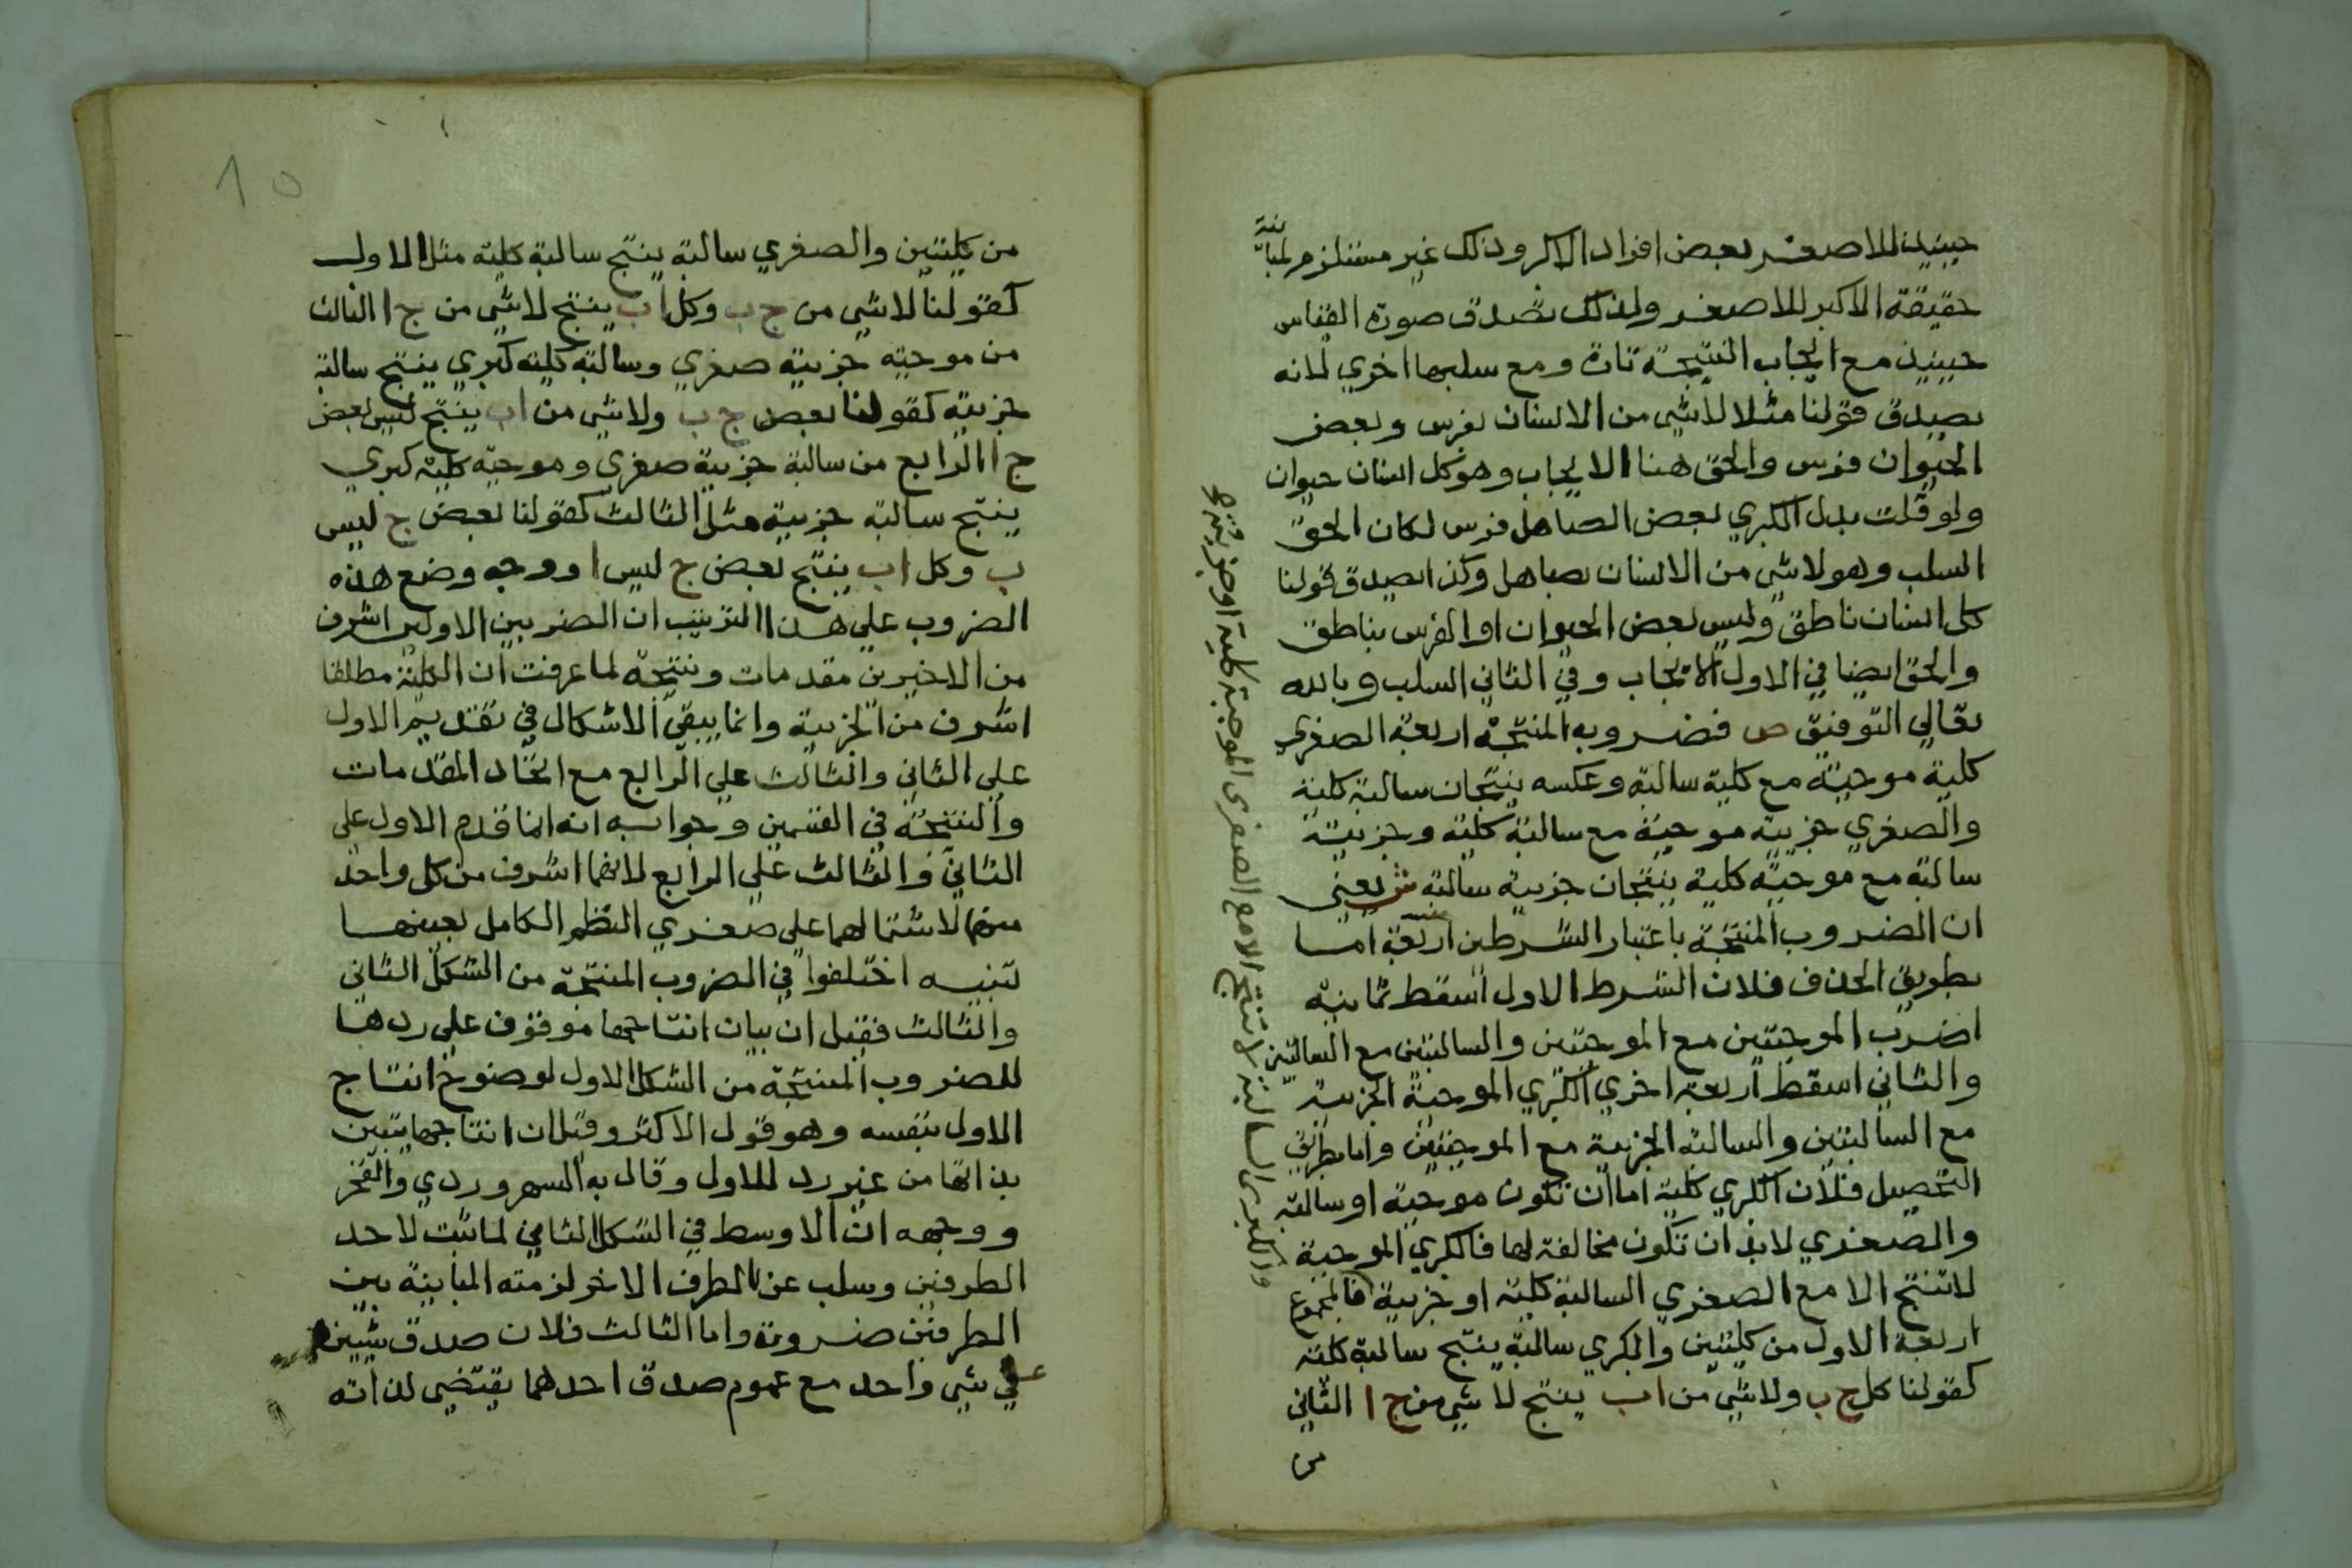 حينيذ للاصغر بعض افراد الاكبر وذلك غير مستلزم لمباينة
حقيقة الاكبر للاصغر ولذلك تصدق صورة القياس
حينيذ مع ايجاب النتيجة تارة ومع سلبها اخري لانه
يصدق قولنا مثلا لا شي من الانسان بفرس وبعض
الحيوان فرس والحق هنا الايجاب وهو كل انسان حيوان
ولو قلت بدل الكبري بعض الصاهل فرس لكان الحق
السلب وهو لا شي من الانسان بصاهل وكذا يصدق قولنا
كل انسان ناطق وليس بعض الحيوان او الفرس بناطق
والحق ايضا في الاول الايجاب وفي الثاني السلب وبالله
تعالي التوفيق ص فضروبه المنتجة اربعة الصغري
كلية موجبة مع كلية سالبة وعكسه ينتجان سالبة كلية
والصغري جزيية موجبة مع سالبة كلية وجزيية
سالبة مع موجبة كلية ينتجان جزيية سالبة ش يعني
ان الضروب المنتجة باعتبار الشرطين اربعة اما
بطريق الحذف فلان الشرط الاول اسقط ثمانية
اضرب الموجبتين مع الموجبتين والسالبتين مع السالبتين
والثاني اسقط اربعة اخري الكبري الموجبة الجزيية
مع السالبتين والسالبة الجزيية مع الموجبتين واما بطريق
التحصيل فلان الكبري كلية اما ان تكون موجبة او سالبة
والصغري لا بد ان تكون مخالفة لها فالكبري الموجبة
لا تنتج الا مع الصغري السالبة كلية او جزيية فالمجموع
اربعة الاول من كليتين والكبري سالبة ينتج سالبة كلية
كقولنا كل ج ب ولا شي من ا ب ينتج لا شي من ج ا الثاني
من
والكبرى السالبة لا تنتج الا مع الصغرى الموجبة كلية او جزيية
من كليتين والصغري سالبة ينتج سالبة كلية مثل الاول
كقولنا لا شي من ج ب وكل ا ب ينتج لا شي من ج ا الثالث
من موجبة جزيية صغري وسالبة كلية كبري ينتج سالبة
جزيية كقولنا بعض ج ب ولا شي من ا ب ينتج ليس بعض
ج ا الرابع من سالبة جزيية صغري وموجبة كلية كبري
ينتج سالبة جزيية مثل الثالث كقولنا بعض ج ليس
ب وكل ا ب ينتج بعض ج ليس ا ووجه وضع هذه
الضروب علي هذا الترتيب ان الضربين الاولين اشرف
من الاخيرين مقدمات ونتيجة لما عرفت ان الكلية مطلقا
اشرف من الجزيية وانما يبقي الاشكال في تقديم الاول
علي الثاني والثالث علي الرابع مع اتحاد المقدمات
والنتيجة في القسمين وجوابه انه انما قدم الاول علي
الثاني والثالث علي الرابع لانهما اشرف من كل واحد
منهما لاشتمالهما علي صغري النظم الكامل بعينها
تنبيه اختلفوا في الضروب المنتجة من الشكل الثاني
والثالث فقيل ان بيان انتاجها موقوف علي ردها
للضروب المنتجة من الشكل الاول لوضوح انتاج
الاول بنفسه وهو قول الاكثر وقيل ان انتاجها يتبين
بذاتها من غير رد للاول وقال به السهروردي والفخر
ووجهه ان الاوسط في الشكل الثاني لما ثبت لاحد
الطرفين وسلب عن الطرف الاخر لزمته المباينة بين
الطرفين ضرورة واما الثالث فلان صدق شيين
علي شي واحد مع عموم صدق احدهما يقتضي لذاته
10